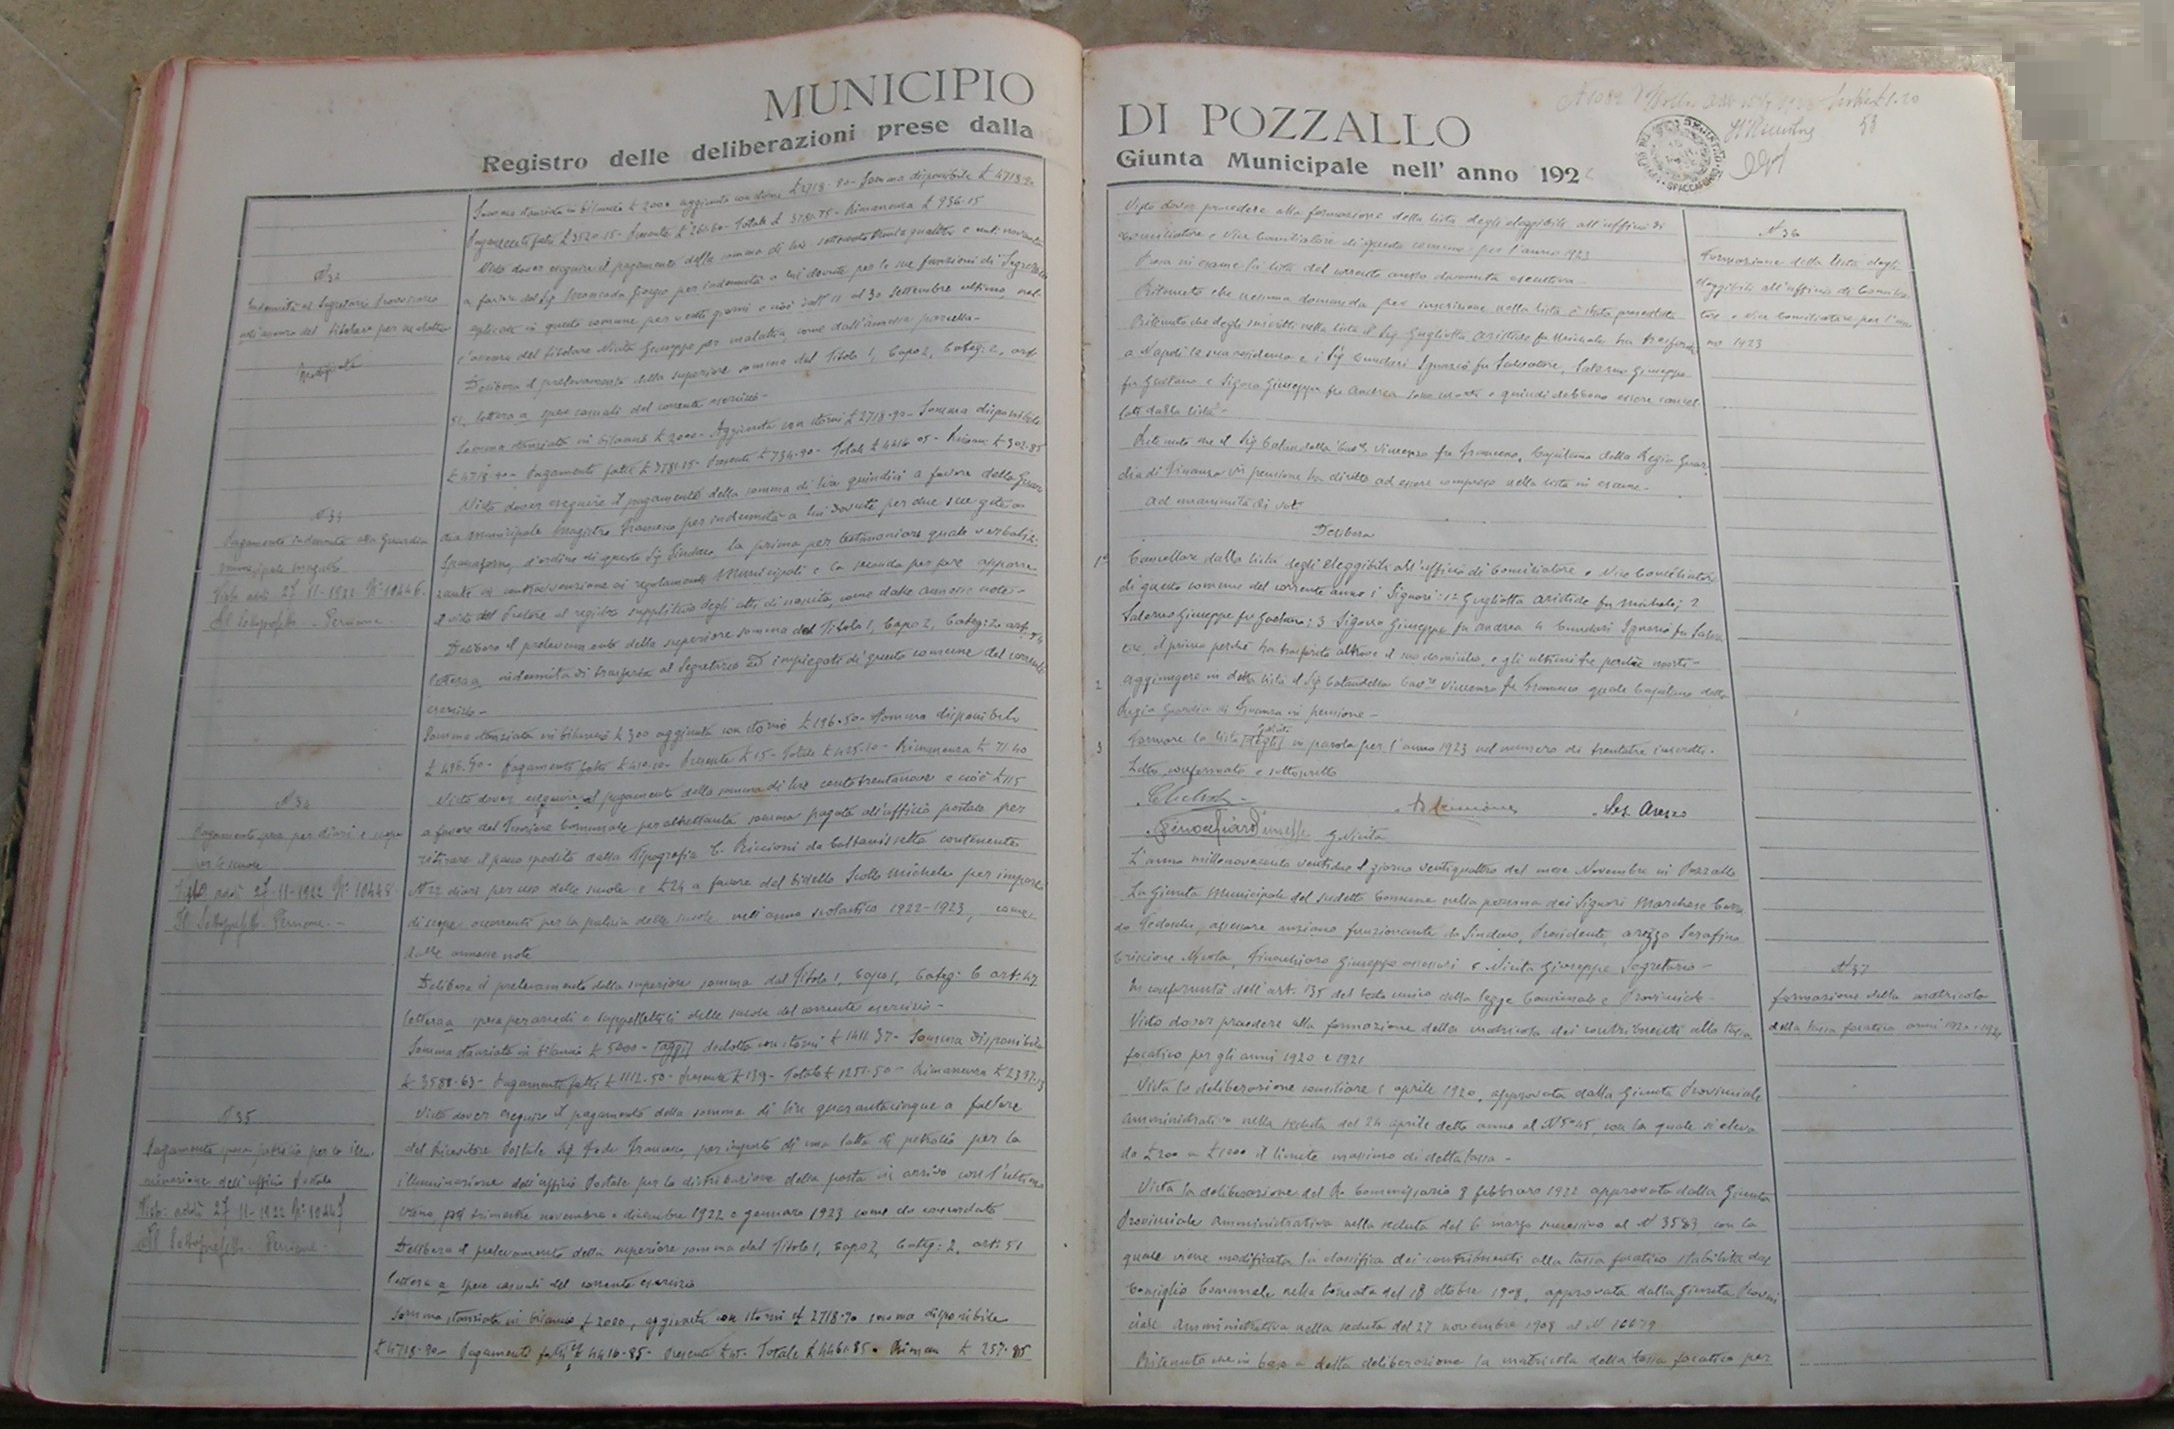 MUNICIPIO
Registro delle deliberazioni prese dalla
Somma stanziata in bilancio £ 2000 aggiunta con storni £ 2718.90 - Somma disponibile £ 4718.90
Pagamenti fatti £ 3520.15 - Presente £ 261.60 - Totale £ 3781.75 - Rimanenza £ 936.15
N 32
Indennità al Segretario provvisorio
in assenza del titolare per malattia
Visto dover eseguire il pagamento della somma di lire settecentotrentaquattro e cent. novanta
a favore del Sig. Giorgio per indennità a lui dovute per le sue funzioni di Segretario
esplicate in questo comune per venti giorni e cioè dall'11 al 30 settembre ultimo, nel
l'assenza del titolare Nicita Giuseppe per malattia, come dall'annessa parcella -
Delibera il prelevamento della superiore somma dal Titolo I, Capo 2, Categ: 2, art.
51 lettera a spese casuali del corrente esercizio -
Somma stanziata in bilancio £ 2000 - Aggiunta con storni £ 2718.90 - Somma disponibile
£ 4718.90 - Pagamenti fatti £ 3781.15 - Presente £ 734.90 - Totale £ 4416.05 - Riman. £ 302.85
N 33
Pagamento indennità alla Guardia
municipale Magistro
Visto addì 27-11-1922 N° 10446.
Il Sottoprefetto - Perrione -
Visto dover eseguire il pagamento della somma di lire quindici a favore della Guar
dia municipale Magistro Francesco per indennità a lui dovute per due sue gite a
Spaccaforno, d'ordine di questo Sig. Sindaco, la prima per testimoniare quale verbaliz-
zante in contravvenzione ai regolamenti Municipali e la seconda per fare apporre
il visto del Pretore al registro suppletivo degli atti di nascita, come dalle annesse note -
Delibera il prelevamento della superiore somma dal Titolo I, Capo 2, Categ: 2 art.
lettera a indennità di trasferta al Segretario ed impiegati di questo comune del corrente
esercizio -
Somma stanziata in bilancio £ 300 aggiunta con storni £ 196.50 - Somma disponibile
£ 496.50 - Pagamenti fatti £ 410.10 - Presente £ 15 - Totale £ 425.10 - Rimanenza £ 71.40
N 34
Pagamento spesa per diari e scope
per le scuole
Visto addì 27-11-1922 N° 10448.
Il Sottoprefetto - Perrione. -
Visto dover eseguire il pagamento della somma di lire centotrentanove e cioè £ 115
a favore del Tesoriere Comunale per altrettanta somma pagata all'ufficio postale per
ritirare il pacco spedito dalla Tipografia C. Riccioni da Caltanissetta contenente
N 22 diari per uso delle scuole e £ 24 a favore del bidello Scollo Michele per importo
di scope occorrenti per la pulizia delle scuole nell'anno scolastico 1922-1923, come
dalle annesse note
Delibera il prelevamento della superiore somma dal Titolo I, Capo I, Categ: 6 art. 47
lettera a spese per arredi e suppellettili delle scuole del corrente esercizio -
Somma stanziata in bilancio £ 5000 - [aggi] dedotta con storni £ 1411.37 - Somma disponibile
£ 3588.63 - Pagamenti fatti £ 1112.50 - Presente £ 139 - Totale £ 1251.50 - Rimanenza £ 2337.13
N 35
Pagamento spesa petrolio per la illu-
minazione dell'ufficio Postale
Visto: addì 27-11-1922 N° 10447
Il Sottoprefetto - Perrione -
Visto dover eseguire il pagamento della somma di lire quarantacinque a favore
del Ricevitore Postale Sig. Francesco, per importo di una latta di petrolio per la
illuminazione dell'ufficio Postale per la distribuzione della posta in arrivo con l'ultimo
treno pel trimestre novembre e dicembre 1922 e gennaro 1923 come da concordato
Delibera il prelevamento della superiore somma dal Titolo I, Capo 2, Categ: 2, art. 51
lettera a spese casuali del corrente esercizio
Somma stanziata in bilancio £ 2000, aggiunta con storni £ 2718.90 somma disponibile
£ 4718.90 - Pagamenti fatti £ 4416.85 - Presente £ 45 - Totale £ 4461.85 - Riman £ 257.05
DI POZZALLO
Giunta Municipale nell' anno 192
58
Visto dover procedere alla formazione della lista degli eleggibili all'ufficio di
Conciliatore e Vice Conciliatore di questo comune per l'anno 1923
Presa in esame la lista del corrente anno divenuta esecutiva -
Ritenuto che nessuna domanda per inscrizione nella lista è stata presentata
Ritenuto che degli inscritti nella lista il Sig. Gugliotta Aristide fu Michele ha trasferito
a Napoli la sua residenza e i Sig. Cundari Ignazio fu Salvatore, Salerno Giuseppe
fu Gaetano e Sigona Giuseppe fu Andrea sono morti e quindi debbono essere cancel
lati dalla lista -
Ritenuto che il Sig. Calandella Cav. Vincenzo fu Francesco, Capitano della Regia Guar
dia di Finanza in pensione ha diritto ad essere compreso nella lista in esame -
Ad unanimità di voti
Delibera
N 36
Formazione della lista degli
eleggibili all'ufficio di Concilia-
tore e Vice Conciliatore per l'an
no 1923
1° Cancellare dalla lista degli eleggibili all'ufficio di Conciliatore e Vice Conciliatore
di questo comune del corrente anno i Signori: 1° Gugliotta Aristide fu Michele; 2
Salerno Giuseppe fu Gaetano; 3 Sigona Giuseppe fu Andrea 4 Cundari Ignazio fu Salva
tore, il primo perchè ha trasferito altrove il suo domicilio, e gli ultimi tre perchè morti -
2 Aggiungere in detta lista il Sig. Calandella Cav. Vincenzo fu Francesco quale Capitano della
Regia Guardia di Finanza in pensione -
3 Formare la lista [degli] in parola per l'anno 1923 nel numero di trentatre inscritti -
Letto, confermato e sottoscritto
Ser. Arezzo
G Nicita
L'anno millenovecento ventidue il giorno ventiquattro del mese Novembre in Pozzallo
La Giunta Municipale del suddetto Comune nella persona dei Signori Marchese Corra
do Tedeschi, assessore anziano funzionante da Sindaco, Presidente, Arezzo Serafino
Criscione Nicola, Finocchiaro Giuseppe assessori e Nicita Giuseppe Segretario -
In conformità dell'art. 135 del testo unico della legge Comunale e Provinciale -
Visto dover procedere alla formazione della matricola dei contribuenti alla tassa
focatico per gli anni 1920 e 1921
N 37
formazione della matricola
della tassa focatico anni 1920-1921
Vista la deliberazione consiliare 5 aprile 1920, approvata dalla Giunta Provinciale
Amministrativa nella seduta del 24 aprile detto anno al N 5045, con la quale si eleva
da £ 200 a £ 1000 il limite massimo di detta tassa -
Vista la deliberazione del R. Commissario 8 febbraro 1922 approvata dalla Giunta
Provinciale Amministrativa nella seduta del 6 marzo successivo al N 3583, con la
quale viene modificata la classifica dei contribuenti alla tassa focatico stabilita dal
Consiglio Comunale nella tornata del 18 ottobre 1908, approvata dalla Giunta Provin
ciale Amministrativa nella seduta del 27 novembre 1908 al N 16679
Ritenuto che in base a detta deliberazione la matricola della tassa focatico per